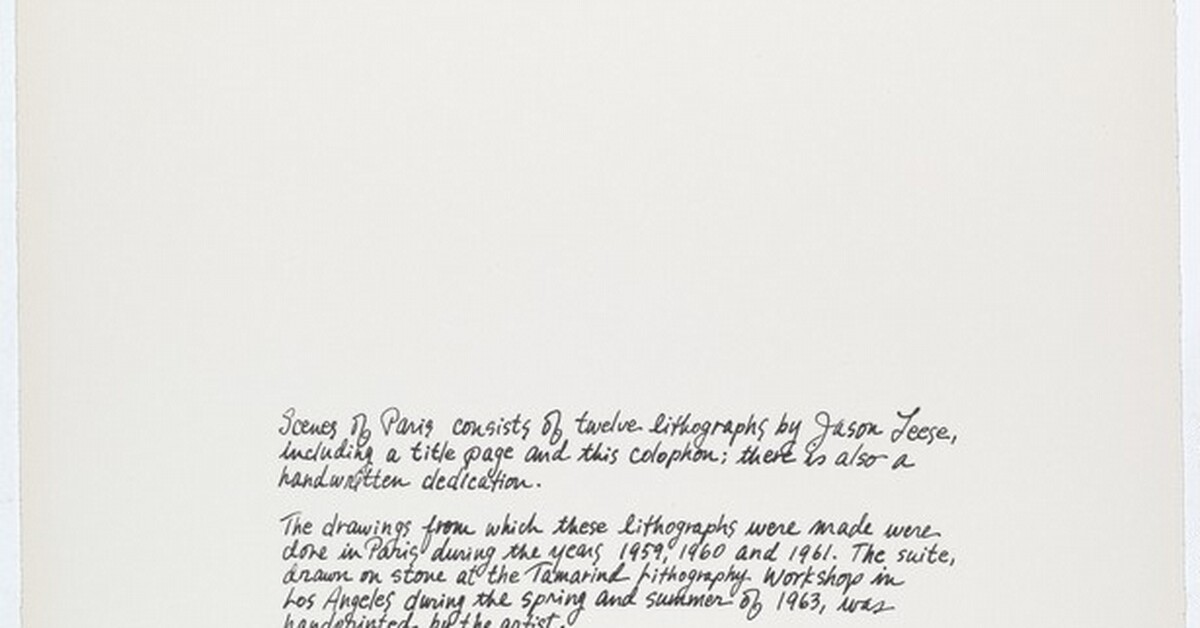 Scenes of Paris consists of twelve lithographs by Jason Leese,
including a title page and this colophon; there is also a
handwritten dedication.
The drawings from which these lithographs were made were
done in Paris during the years 1959, 1960 and 1961. The suite,
drawn on stone at the Tamarind Lithography Workshop in
Los Angeles during the spring and summer of 1963, was
handprinted by the artist.